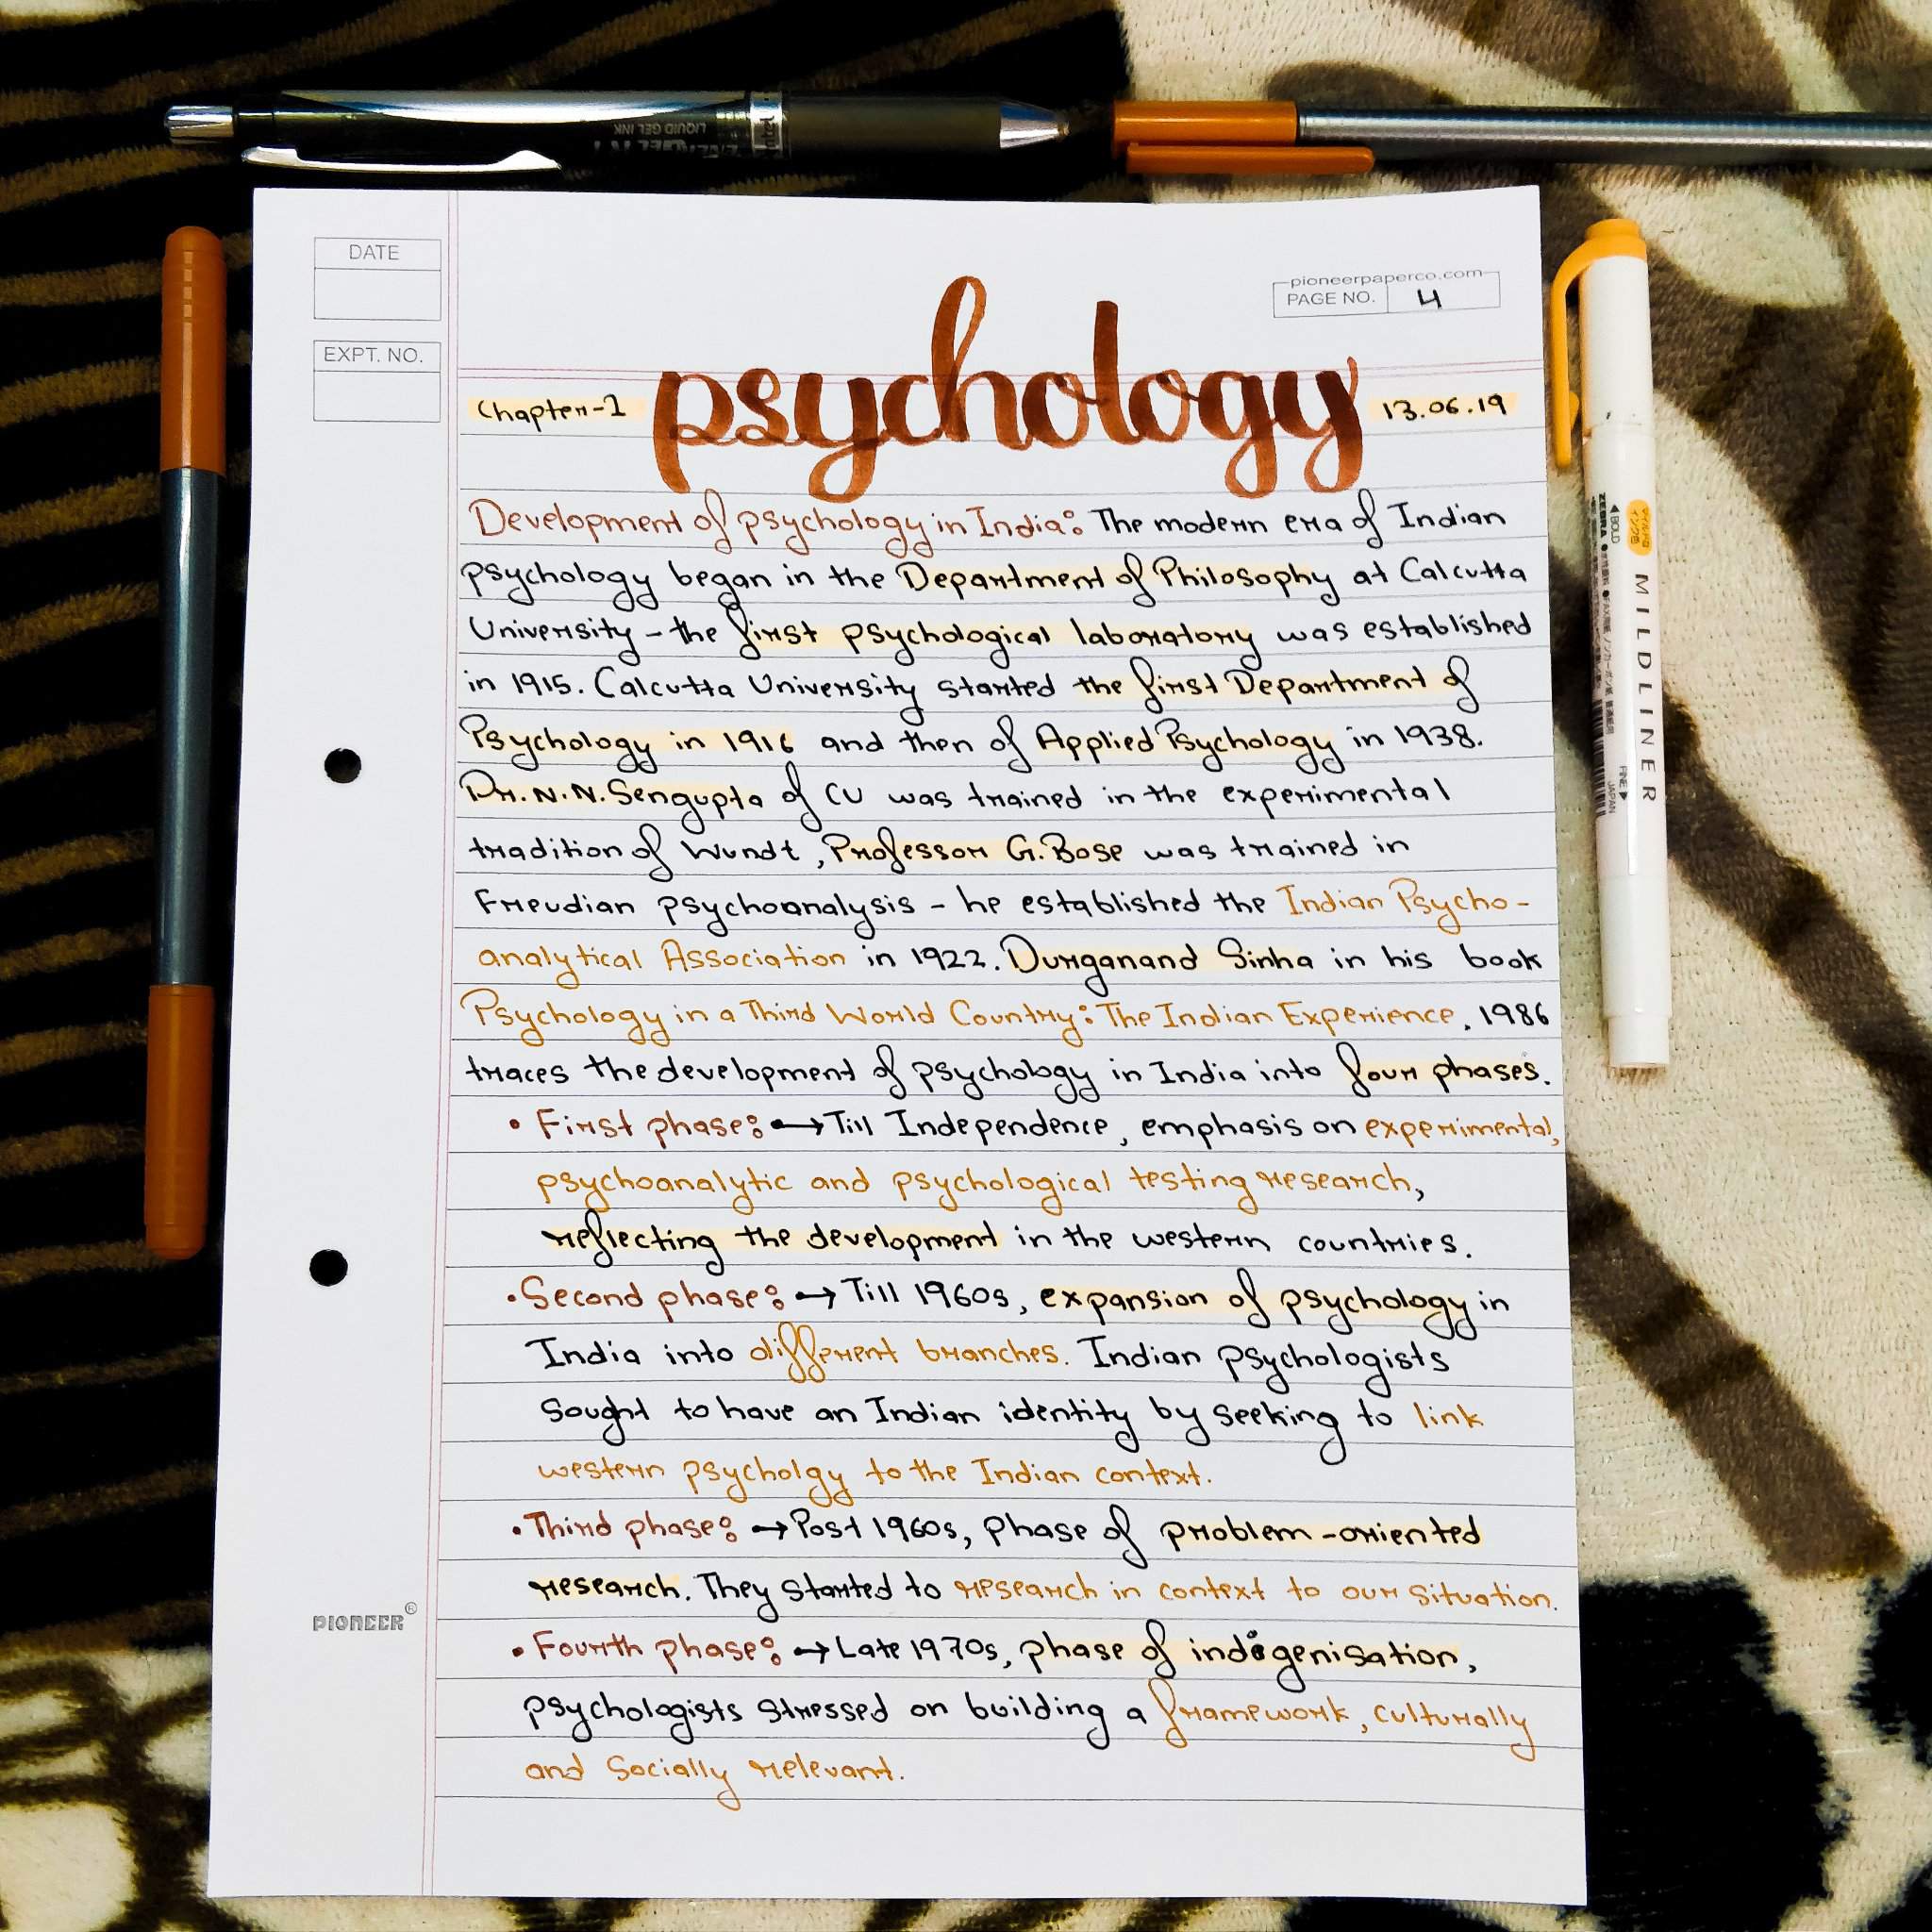 LIQUID GEL INK
DATE
EXPT. NO.
pioneerpaperco.com
PAGE NO. 4
Chapter-1 psychology 13.06.19
Development of psychology in India: The modern era of Indian
psychology began in the Department of Philosophy at Calcutta
University - the first psychological laboratory was established
in 1915. Calcutta University started the first Department of
Psychology in 1916 and then of Applied Psychology in 1938.
Dr. N.N. Sengupta of CU was trained in the experimental
tradition of Wundt, Professor G. Bose was trained in
Freudian psychoanalysis - he established the Indian Psycho-
analytical Association in 1922. Durganand Sinha in his book
Psychology in a Third World Country: The Indian Experience, 1986
traces the development of psychology in India into four phases.
• First phase: → Till Independence, emphasis on experimental,
psychoanalytic and psychological testing research,
reflecting the development in the western countries.
• Second phase: → Till 1960s, expansion of psychology in
India into different branches. Indian psychologists
sought to have an Indian identity by seeking to link
western psycholgy to the Indian context.
• Third phase: → Post 1960s, phase of problem-oriented
research. They started to research in context to our situation.
• Fourth phase: → Late 1970s, phase of indigenisation,
psychologists stressed on building a framework, culturally
and socially relevant.
PIONEER®
MILDLINER
ZEBRA
◀BOLD
FINE▶
JAPAN